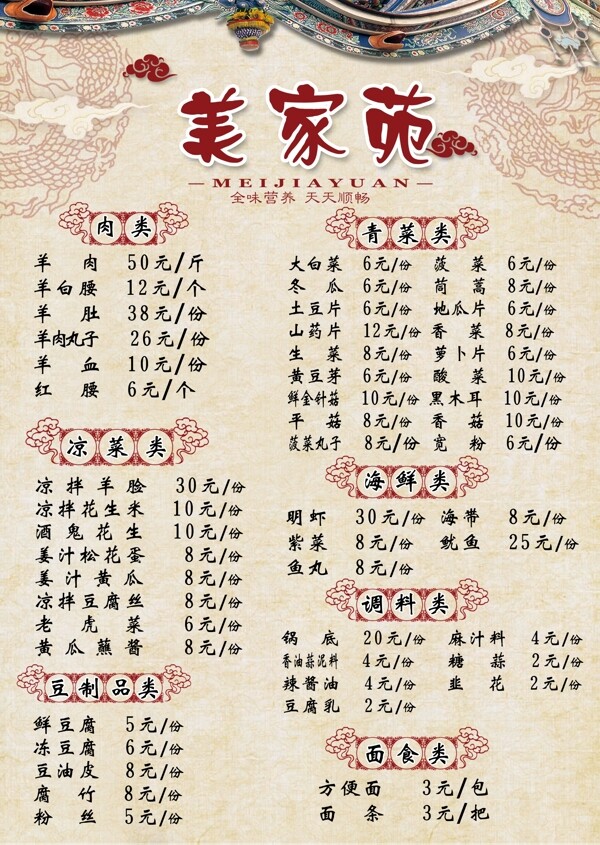 美家苑
MEIJIAYUAN
全味营养 天天顺畅
肉类
羊肉 50元/斤
羊白腰 12元/个
羊肚 38元/份
羊肉丸子 26元/份
羊血 10元/份
红腰 6元/个
凉菜类
凉拌羊脸 30元/份
凉拌花生米 10元/份
酒鬼花生 10元/份
姜汁松花蛋 8元/份
姜汁黄瓜 8元/份
凉拌豆腐丝 8元/份
老虎菜 6元/份
黄瓜蘸酱 8元/份
豆制品类
鲜豆腐 5元/份
冻豆腐 6元/份
豆油皮 8元/份
腐竹 8元/份
粉丝 5元/份
青菜类
大白菜 6元/份 菠菜 6元/份
冬瓜 6元/份 茼蒿 8元/份
土豆片 6元/份 地瓜片 6元/份
山药片 12元/份 香菜 8元/份
生菜 8元/份 萝卜片 6元/份
黄豆芽 6元/份 酸菜 10元/份
鲜金针菇 10元/份 黑木耳 10元/份
平菇 8元/份 香菇 10元/份
菠菜丸子 8元/份 宽粉 6元/份
海鲜类
明虾 30元/份 海带 8元/份
紫菜 8元/份 鱿鱼 25元/份
鱼丸 8元/份
调料类
锅底 20元/份 麻汁料 4元/份
香油蒜泥料 4元/份 糖蒜 2元/份
辣酱油 4元/份 韭花 2元/份
豆腐乳 2元/份
面食类
方便面 3元/包
面条 3元/把